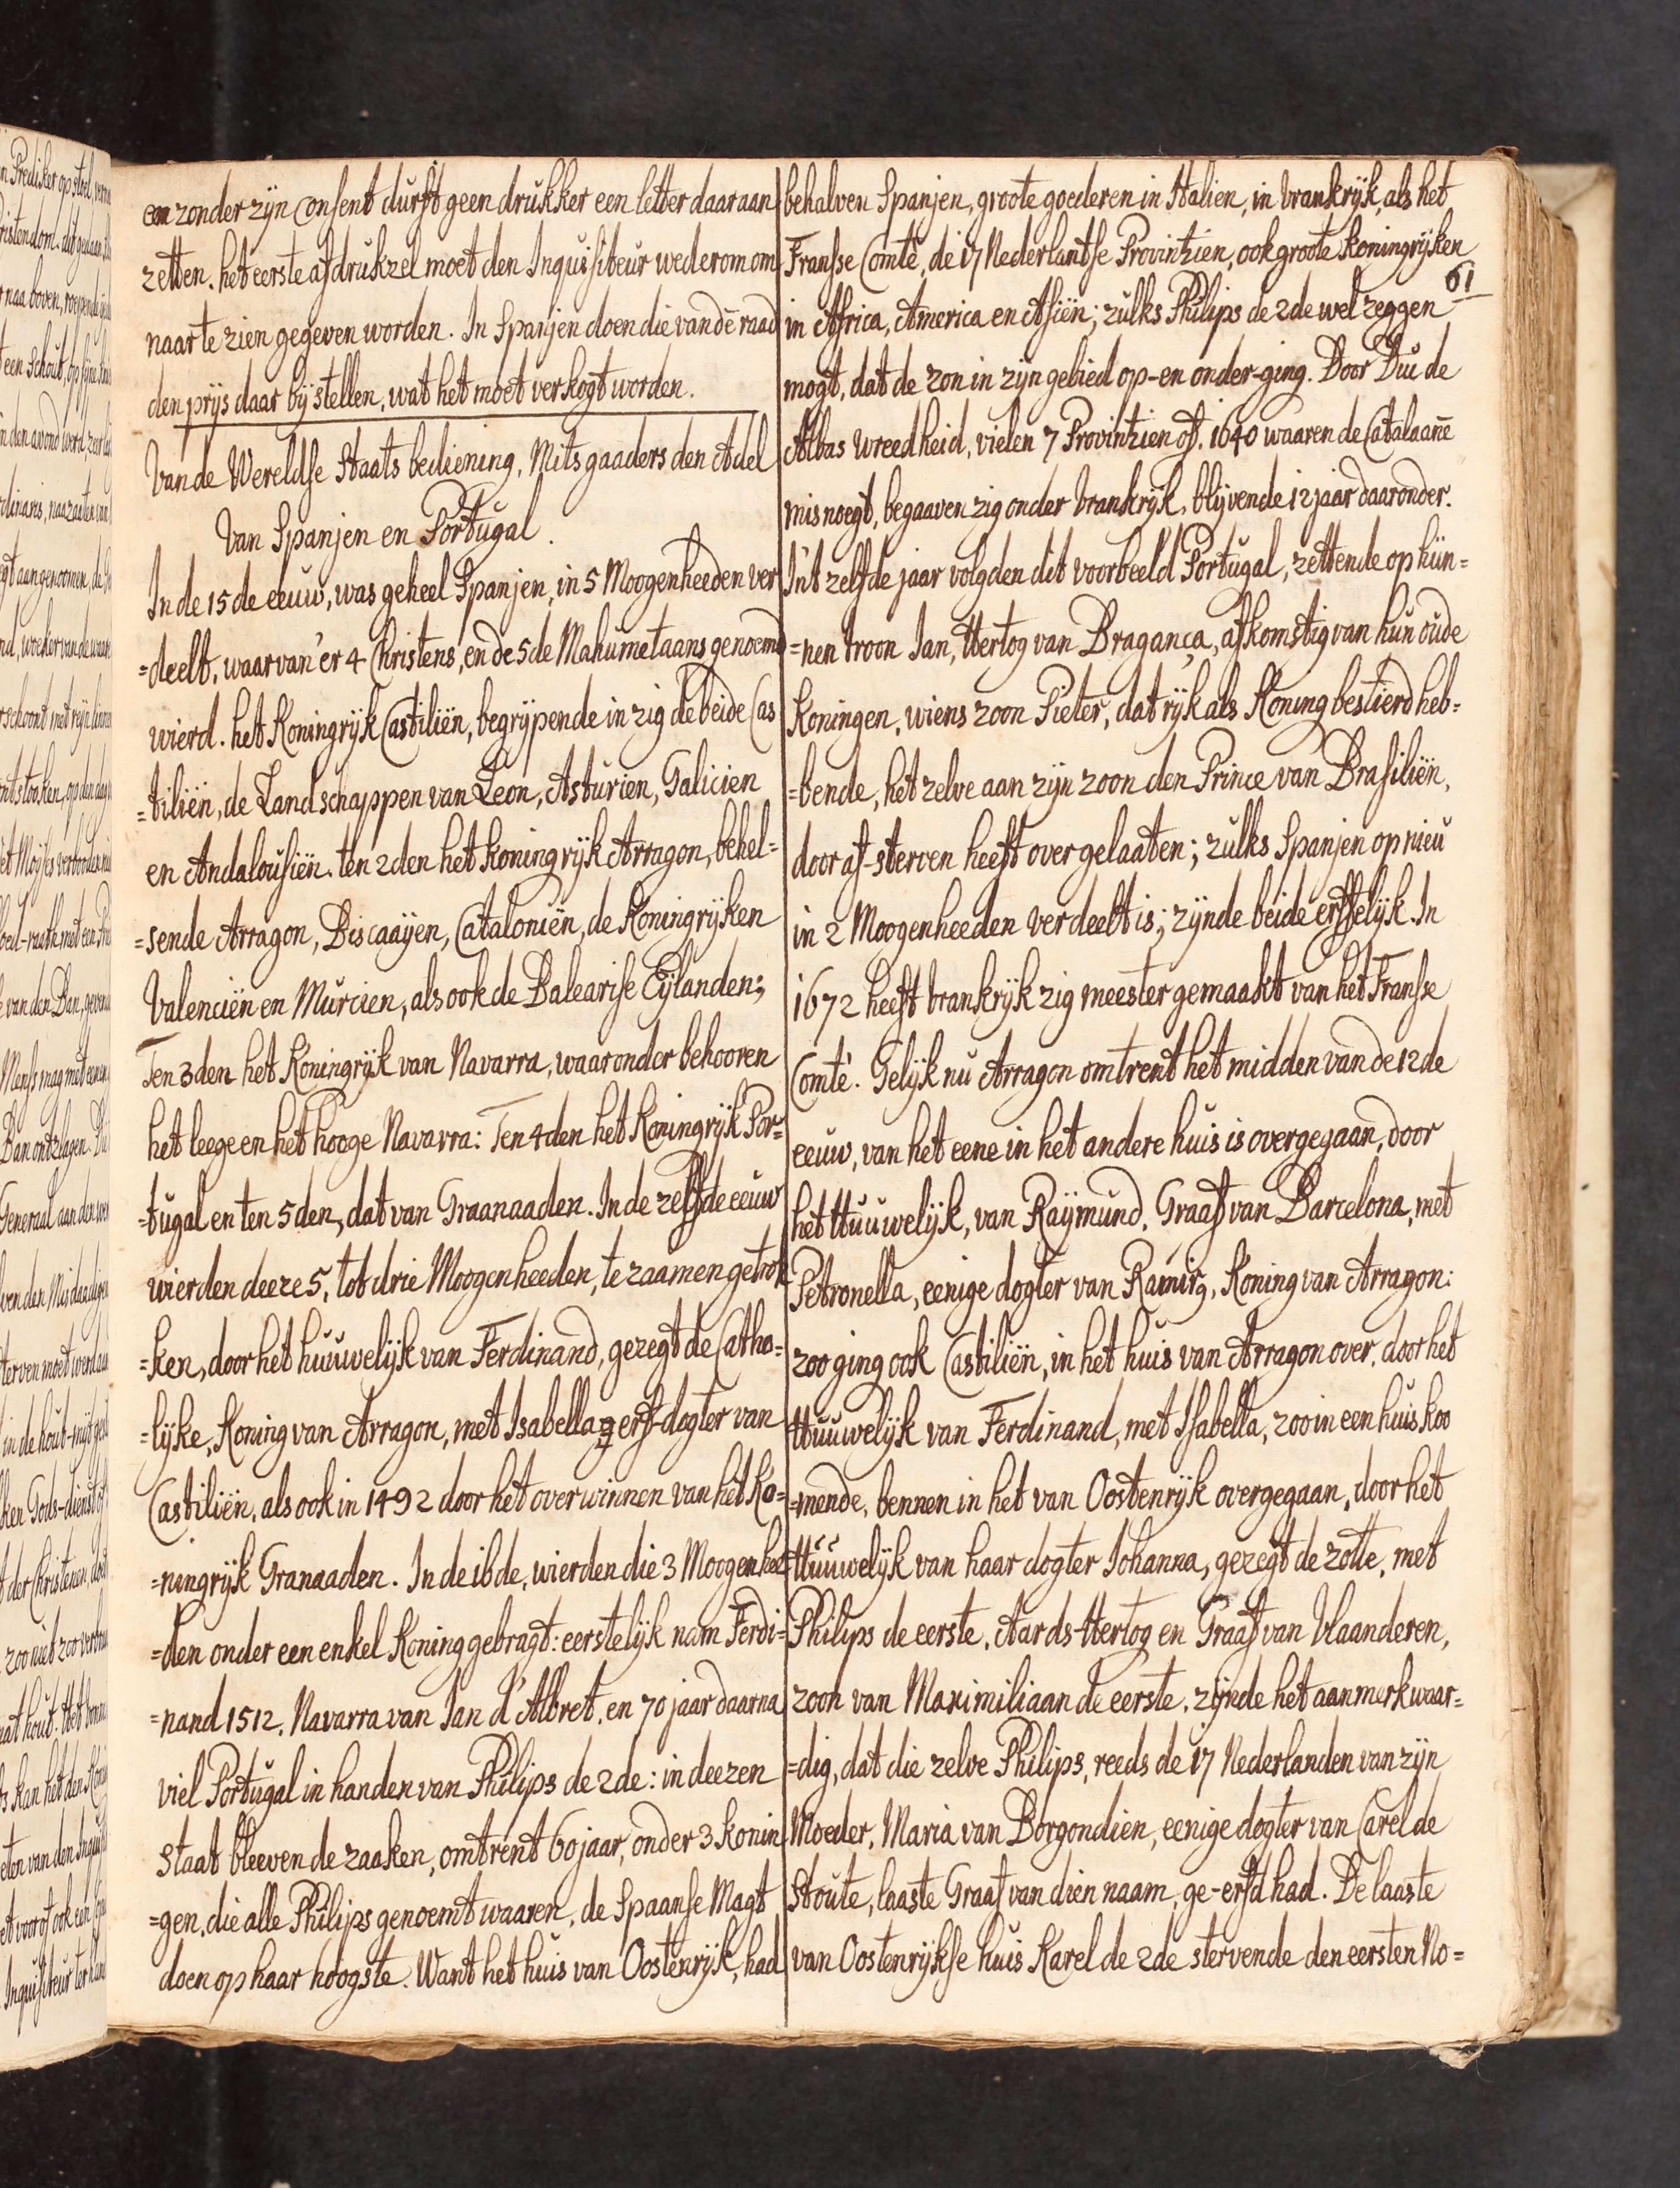 en zonder zijn Consent durft geen drukker een letter daaraan
zetten. het eerste afdrukzel moet den Inquisiteur wederom om
naar te zien gegeven worden. In Spanjen doen die van dē raad
den prijs daar bij stellen, wat het moet verkogt worden.
Van de Wereldse Staats bediening, Mitsgaaders den Adel
Van Spanjen en Portugal.
In de 15de eeuw, was geheel Spanjen, in 5 Moogenheeden ver
=deelt, waar van 'er 4 Christens, en de 5de Mahumetaans genoemd
wierd. het Koningrijk Castiliën, begrijpende in zig de beide Cas
=tiliën, de Landschappen van Leon, Asturien, Galicien
en Andalousiën. ten 2den het koningrijk Arragon, behel=
=sende Arragon, Discaaijen, Cataloniën, de Koningrijken
Valenciën en Murcien, als ook de Balearise Eijlanden;
Ten 3den het Koningrijk van Navarra, waar onder behooren
het leege en het hooge Navarra: Ten 4den het Koningrijk Por=
=tugal en ten 5den, dat van Graanaaden. In de zelfde eeuw
wierden deeze 5, tot drie Moogenheeden, te zaamen getrok
=ken, door het huuwelijk van Ferdinand, gezegt de Catho=
=lijke, Koning van Arragon, met Isabella erf-dogter van
Castiliën, als ook in 1492 door het overwinnen van het Ko=
=ningrijk Granaaden. In de 16de, wierden die 3 Moogenhee
=den onder een enkel Koning gebragt: eerstelijk nam Ferdi=
=nand 1512, Navarra van Jan d'Albret, en 70 jaar daarna
viel Portugal in handen van Philips de 2de: in deezen
staat bleeven de zaaken, omtrent 60 jaar, onder 3 konin
=gen, die alle Philips genoemt waaren, de Spaanse Magt
doen op haar hoogste. Want het huis van Oostenrijk, had
behalven Spanjen, groote goederen in Italien, in Vrankrijk, als het
Franse Comté, de 17 Nederlantse Provintzien, ook groote koningrijken
61
in Africa, America en Asiën; zulks Philips de 2de wel zeggen
mogt, dat de zon in zijn gebied op- en onder-ging. Door Duc de
Albas wreedheid, vielen 7 Provintzien af. 1640 waaren de Catalaanē
misnoegt, begaaven zig onder Vrankrijk, blijvende 12 jaar daaronder.
In't zelfde jaar volgden dit voorbeeld Portugal, zettende op hun=
=nen troon Jan, Hertog van Bragança, afkomstig van hun oude
Koningen, wiens zoon Pieter, dat rijk als Koning bestierd heb=
=bende, het zelve aan zijn zoon den Prince van Brasiliën,
door af-sterven heeft over gelaaten; zulks Spanjen op nieu
in 2 Moogenheeden verdeelt is; zijnde beide erffelijk. In
1672 heeft Vrankrijk zig meester gemaakt van het Franse
Comté. Gelijk nu Arragon omtrent het midden van de 12de
eeuw, van het eene in het andere huis is overgegaan, door
het Huuwelijk, van Raijmund, Graaf van Barcelona, met
Petronella, eenige dogter van Ramirg, Koning van Arragon:
zoo ging ook Castiliën, in het huis van Arragon over, door het
Huuwelijk van Ferdinand, met Isabella, zoo in een huis koo
=mende, bennen in het van Oostenrijk overgegaan, door het
Huuwelijk van haar dogter Johanna, gezegt de zotte, met
Philips de eerste, Aards-Hertog en Graaf van Vlaanderen,
zoon van Maximiliaan de eerste. zijnde het aanmerkwaar=
=dig, dat die zelve Philips, reeds de 17 Nederlanden van zijn
Moeder, Maria van Borgondien, eenige dogter van Carel de
Stoute, laaste Graaf van dien naam, ge-erfd had. De laaste
van Oostenrijkse huis Karel de 2de stervende den eersten No=